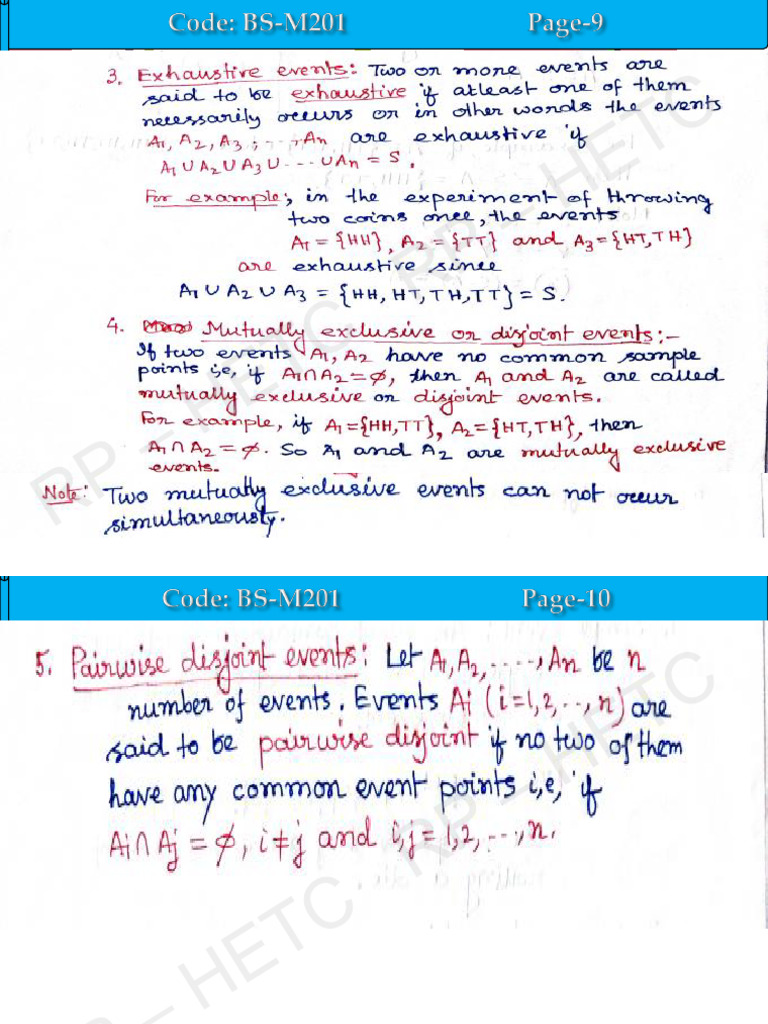 Code: BS-M201 Page-9
3. Exhaustive events: Two or more events are
said to be exhaustive if atleast one of them
necessarily occurs or in other words the events
A1, A2, A3, ..., An are exhaustive if
A1 ∪ A2 ∪ A3 ∪ ... ∪ An = S.
For example:, in the experiment of throwing
two coins once, the events
A1 = {HH}, A2 = {TT} and A3 = {HT, TH}
are exhaustive since
A1 ∪ A2 ∪ A3 = {HH, HT, TH, TT} = S.
4. Mutually exclusive or disjoint events:-
If two events A1, A2 have no common sample
points i,e, if A1 ∩ A2 = ∅, then A1 and A2 are called
mutually exclusive or disjoint events.
For example, if A1 = {HH,TT}, A2 = {HT, TH}, then
A1 ∩ A2 = ∅. So A1 and A2 are mutually exclusive
events.
Note: Two mutually exclusive events can not occur
simultaneously.
RP – HETC RP – HETC
Code: BS-M201 Page-10
5. Pairwise disjoint events: Let A1, A2, ....., An be n
number of events. Events Ai (i=1,2, .., n) are
said to be pairwise disjoint if no two of them
have any common event points i,e, if
Ai ∩ Aj = ∅, i ≠ j and i,j = 1,2, ..., n.
RP – HETC RP – HETC